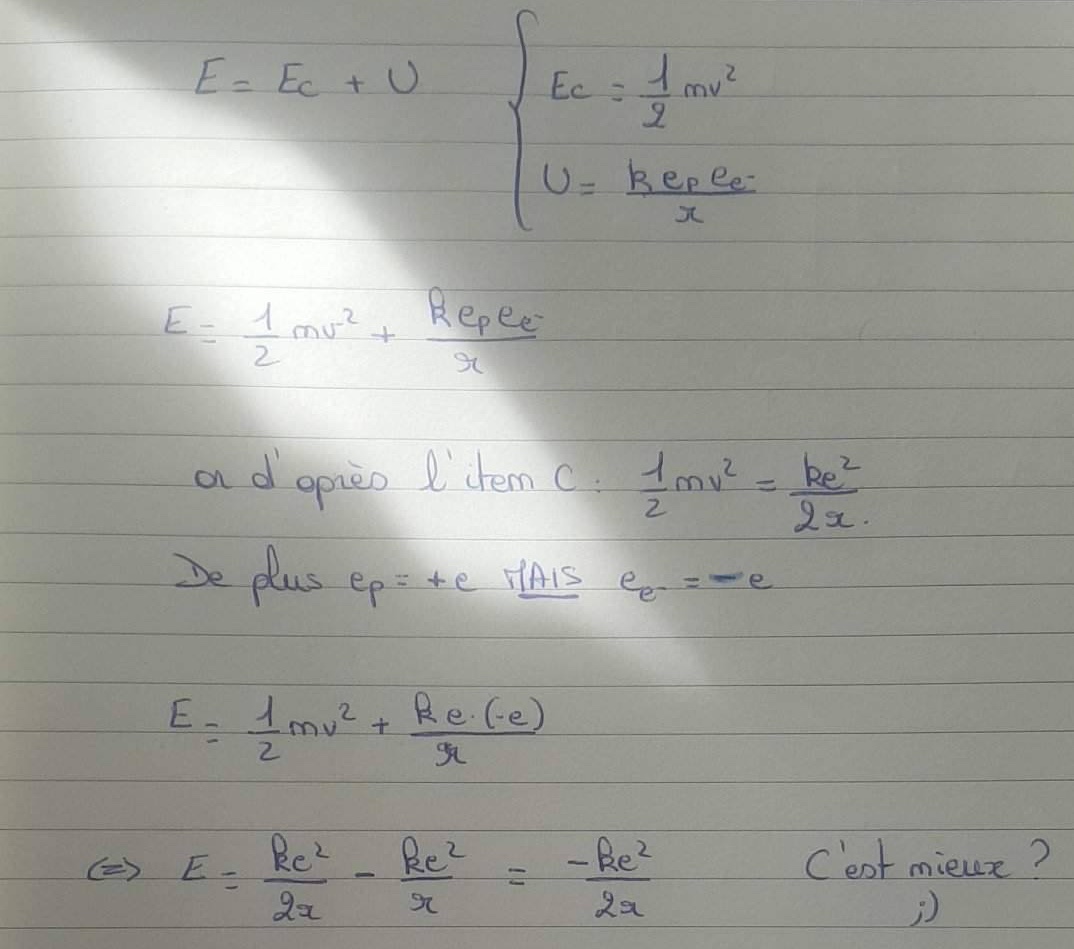 E = Ec + U { Ec = 1/2 mv²
U = k e_p e_e⁻ / r
E = 1/2 mv² + k e_p e_e⁻ / r
or d'après l'item C : 1/2 mv² = ke² / 2r.
De plus e_p = +e MAIS e_e⁻ = -e
E = 1/2 mv² + k e·(-e) / r
<=> E = ke² / 2r - ke² / r = -ke² / 2r C'est mieux ?
;)